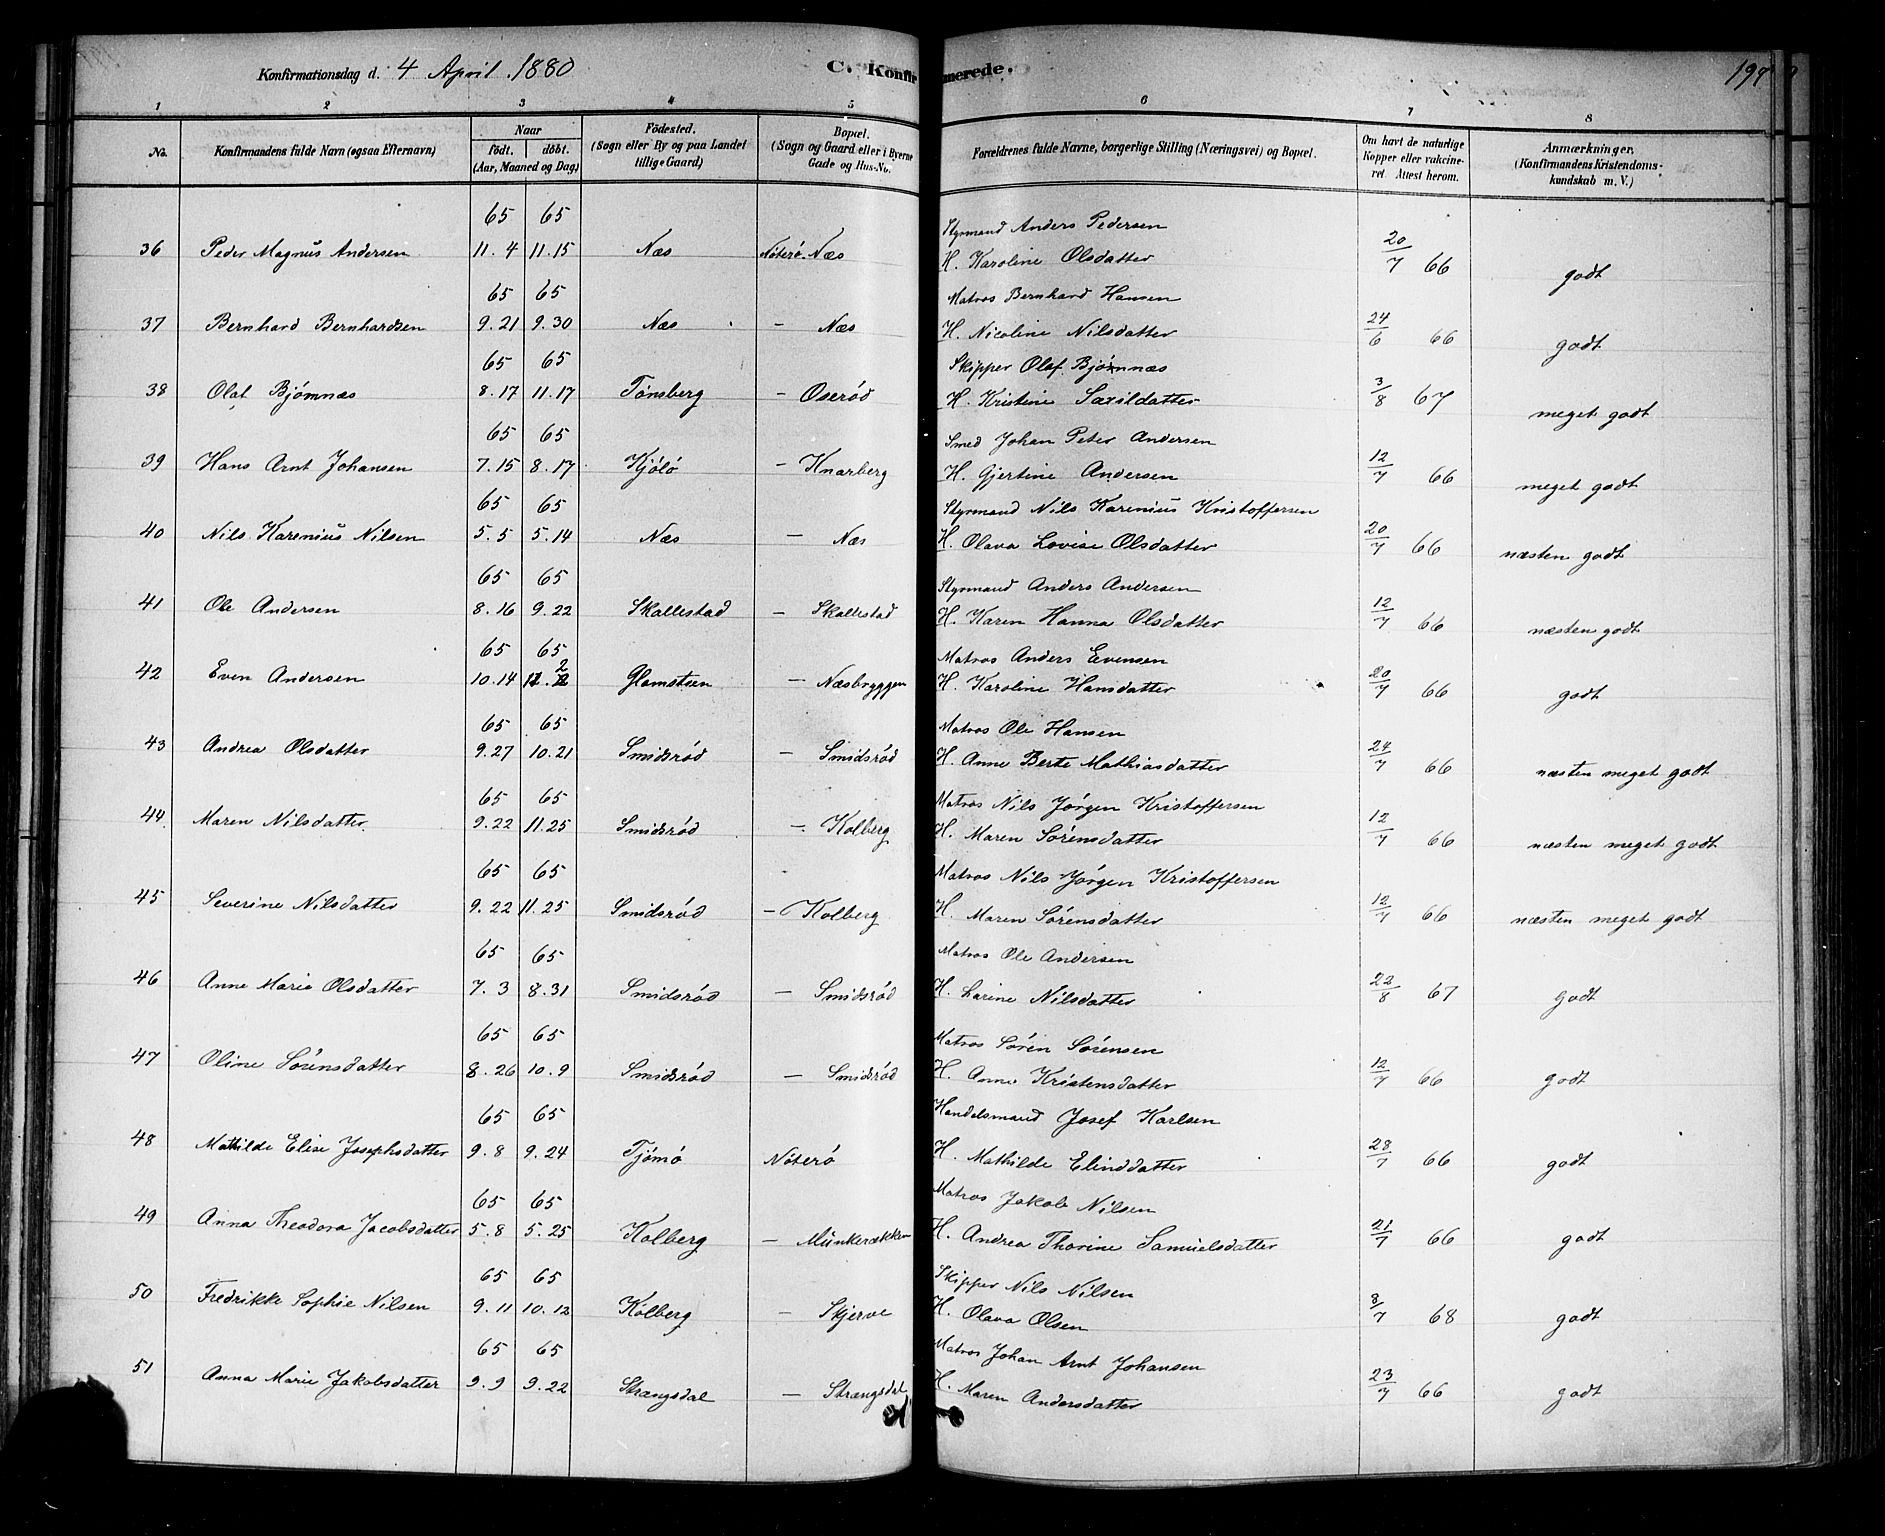 Konfirmationsdag d. 4 April 1880
C. Konfirmerede.
1 2 3 4 5 6 7 8
No. Konfirmandens fulde Navn (ogsaa Efternavn) Naar födt. döbt. (Aar, Maaned og Dag) Födested. (Sogn eller By og paa Landet tillige Gaard) Bopæl. (Sogn og Gaard eller i Byerne Gade og Hus-No. Forældrenes fulde Navne, borgerlige Stilling (Næringsvei) og Bopæl. Om havt de naturlige Kopper eller vakcineret. Attest herom. Anmærkninger, (Konfirmandens Kristendomskundskab m. V.)
65 65 Styrmand Anders Pedersen
36 Peder Magnus Andersen 11. 4 11. 15 Næs Nöterö. Næs H. Karoline Olsdatter 20/7 66 godt
65 65 Matros Bernhard Hansen
37 Bernhard Bernhardsen 9. 21 9. 30 Næs - Næs H. Nicoline Nilsdatter 24/6 66 godt
65 65 Skipper Olaf Bjönnæs
38 Olaf Bjömnæs 8. 17 11. 17 Tönsberg - Oseröd H. Kristine Saxildatter 3/8 67 meget godt
65 65 Smed Johan Peter Andersen
39 Hans Arnt Johansen 7. 15 8. 17 Kjölö - Knarberg H. Gjertine Andersen 12/7 66 meget godt
65 65 Styrmand Nils Karenius Kristoffersen
40 Nils Karenius Nilsen 5. 5 5. 14 Næs - Næs H. Olava Lovise Olsdatter 20/7 66 næsten godt
65 65 Styrmand Anders Andersen
41 Ole Andersen 8. 16 9. 22 Skallestad - Skallestad H. Karen Hanna Olsdatter 12/7 66 næsten godt
65 65 Matros Anders Evensen
42 Even Andersen 10. 14 Glomstsen - Næsbryggen H. Karoline Hansdatter 20/7 66 godt
65 65 Matros Ole Hansen
43 Andrea Olsdatter 9. 27 10. 21 Smidsröd - Smidsröd H. Anne Berte Mathiasdatter 24/7 66 næsten meget godt
65 65 Matros Nils Jörgen Kristoffersen
44 Maren Nilsdatter 9. 22 11. 25 Smidsröd - Kolberg H. Maren Sörensdatter 12/7 66 næsten meget godt
65 65 Matros Nils Jörgen Kristoffersen
45 Severine Nilsdatter 9. 22 11. 25 Smidsröd - Kolberg H. Maren Sörensdatter 12/7 66 næsten meget godt
65 65 Matros Ole Andersen
46 Anne Marie Olsdatter 7. 3 8. 31 Smidsröd - Smidsröd H. Larine Nilsdatter 22/8 67 godt
65 65 Matros Sören Sörensen
47 Oline Sörensdatter 8. 26 10. 9 Smidsröd - Smidsröd H. Anne Kristensdatter 12/7 66 godt
65 65 Handelsmand Josef Karlsen
48 Mathilde Elise Josephsdatter 9. 8 9. 24 Tjömö Nöterö H. Mathilde Elinddatter 28/7 66 godt
65 65 Matros Jakob Nilsen
49 Anna Theodora Jacobsdatter 5. 8 5. 25 Kolberg - Munkerækken H. Andrea Thorine Samuelsdatter 21/7 66 godt
65 65 Skipper Nils Nilsen
50 Fredrikke Sophie Nilsen 9. 11 10. 12 Kolberg - Skjerve H. Olava Olsen 8/7 68 godt
65 65 Matros Johan Arnt Johansen
51 Anna Marie Jakobsdatter 9. 9 9. 22 Strængsdal - Strængsdal H. Maren Andersdatter 23/7 66 godt